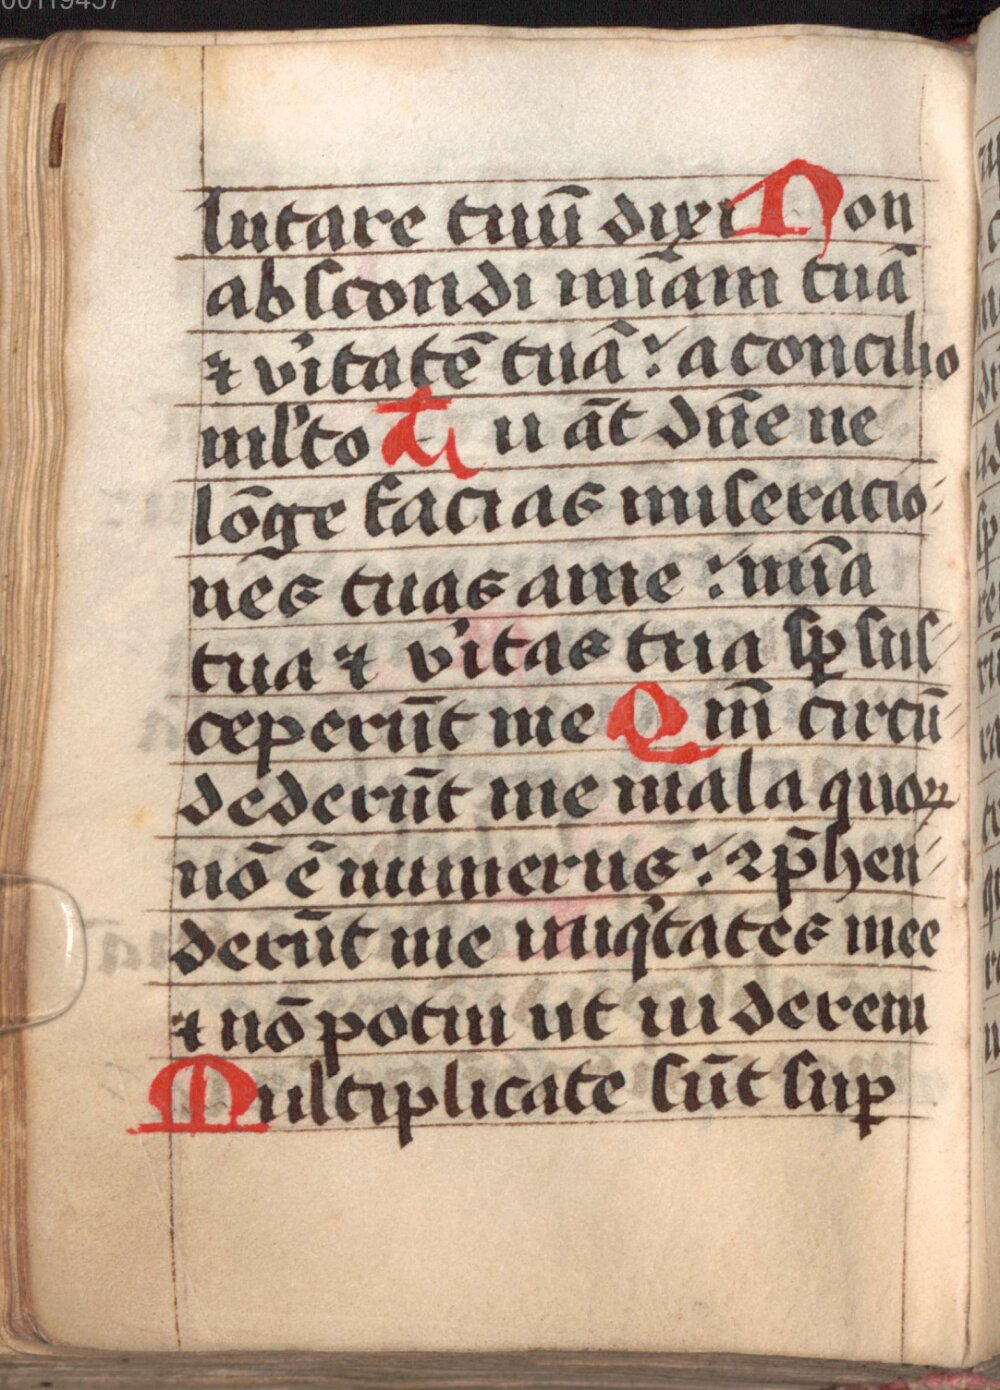 lutare tuū dixi Non
abscondi mīam tuā
⁊ v̓itatē tuā : a concilio
ml̓to Tu āt dn̄e ne
lōge facias miseracio⸗
nes tuas a me : mīa
tua ⁊ v̓itas tua sꝑ sus⸗
ceperūt me Qm̄ circū⸗
dederūt me mala quoꝝ
nō ē numerus : ꝯp̄hen⸗
derūt me iniq̓tates mee
⁊ nō potui ut uiderem
Multiplicate sūt suꝑ